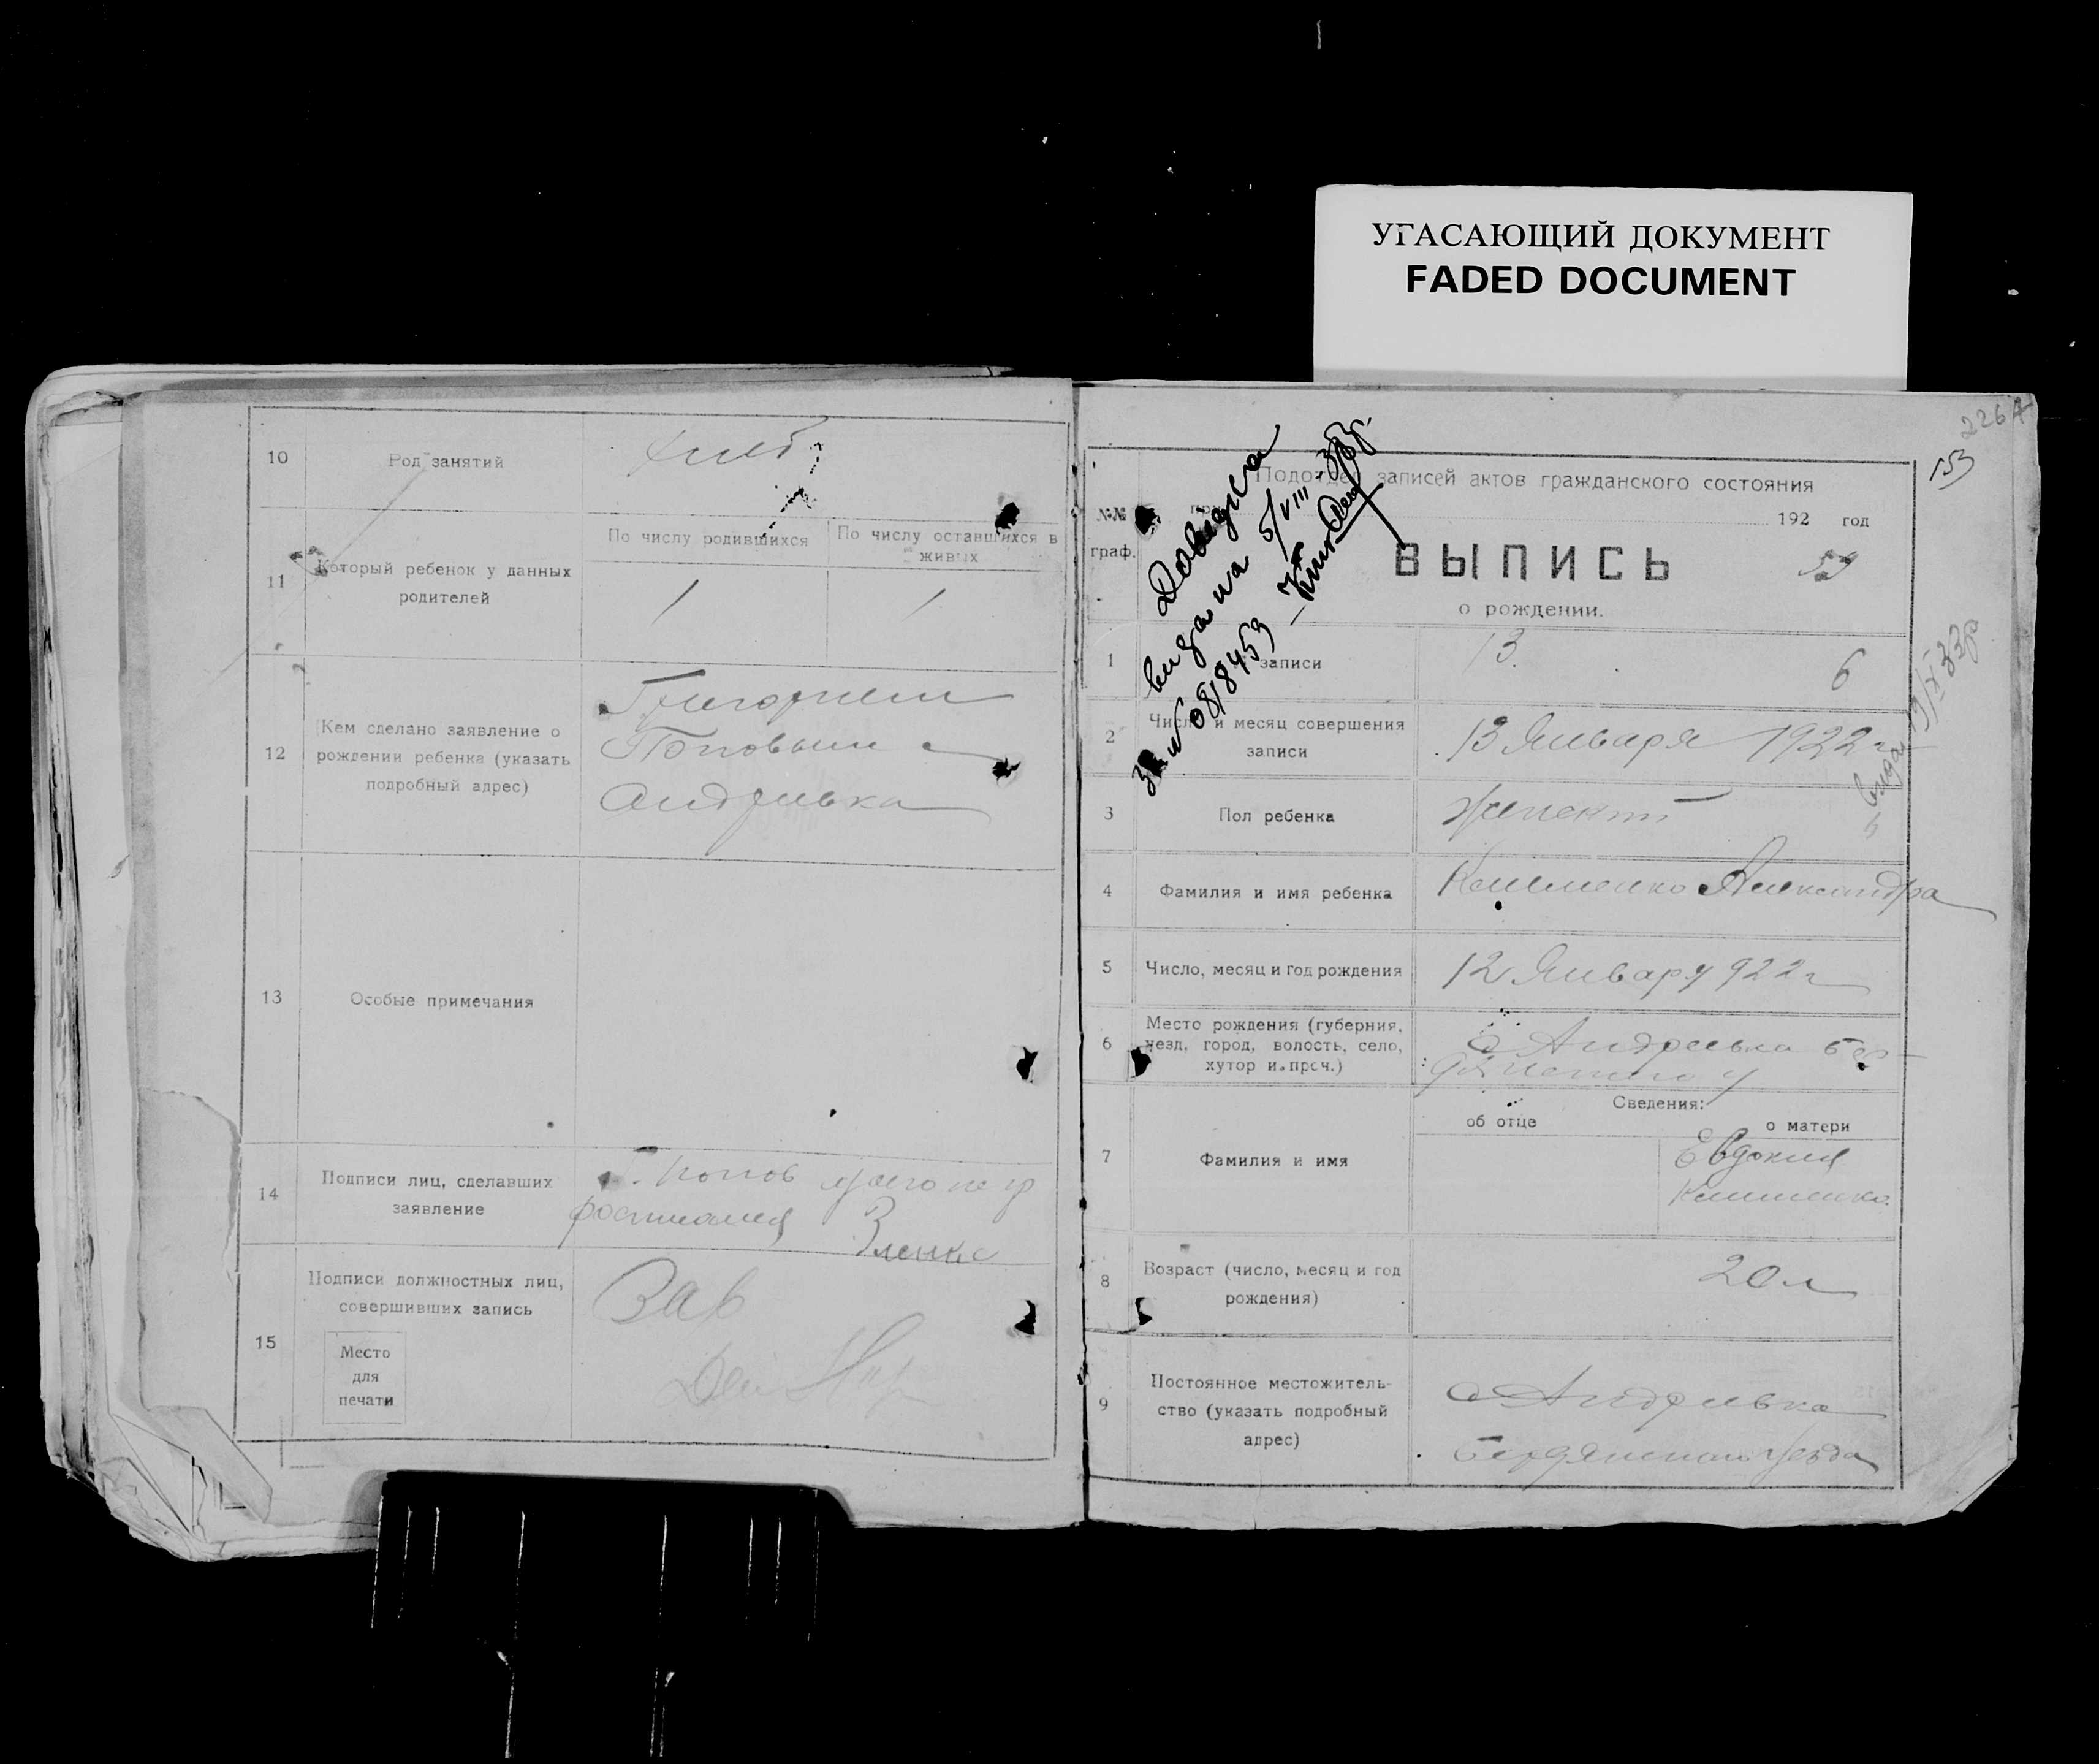 УГАСАЮЩИЙ ДОКУМЕНТ
FADED DOCUMENT
10
Род занятий
11
Который ребенок у данных
родителей
По числу родившихся
По числу оставшихся в
живых
1
1
12
Кем сделано заявление о
рождении ребенка (указать
подробный адрес)
Григорием
Поповым с
Андреевка
13
Особые примечания
14
Подписи лиц, сделавших
заявление
Г. Попов
15
Подписи должностных лиц,
совершивших запись
Место
для
печати
Зав
226
153
Довидка
видана 5/VIII
№ 0818459
Подотдел записей актов гражданского состояния
при
192 год
№№
граф.
ВЫПИСЬ
59
о рождении.
1
записи
13.
6
2
Число и месяц совершения
записи
13 Января 1922 г
3
Пол ребенка
женский
4
Фамилия и имя ребенка
Клименко Александра
5
Число, месяц и год рождения
12 Января 922 г
6
Место рождения (губерния,
уезд, город, волость, село,
хутор и проч.)
с Андреевка Бер-
дянского у
7
Фамилия и имя
Сведения:
об отце
о матери
Евдокия
Клименко
8
Возраст (число, месяц и год
рождения)
20 л
9
Постоянное местожитель-
ство (указать подробный
адрес)
с Андреевка
Бердянского Уезда